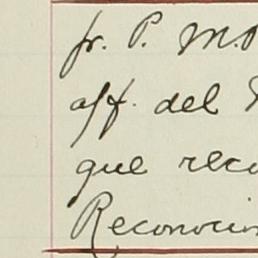 fr. P. M.
aff. del
que reco
Reconocim